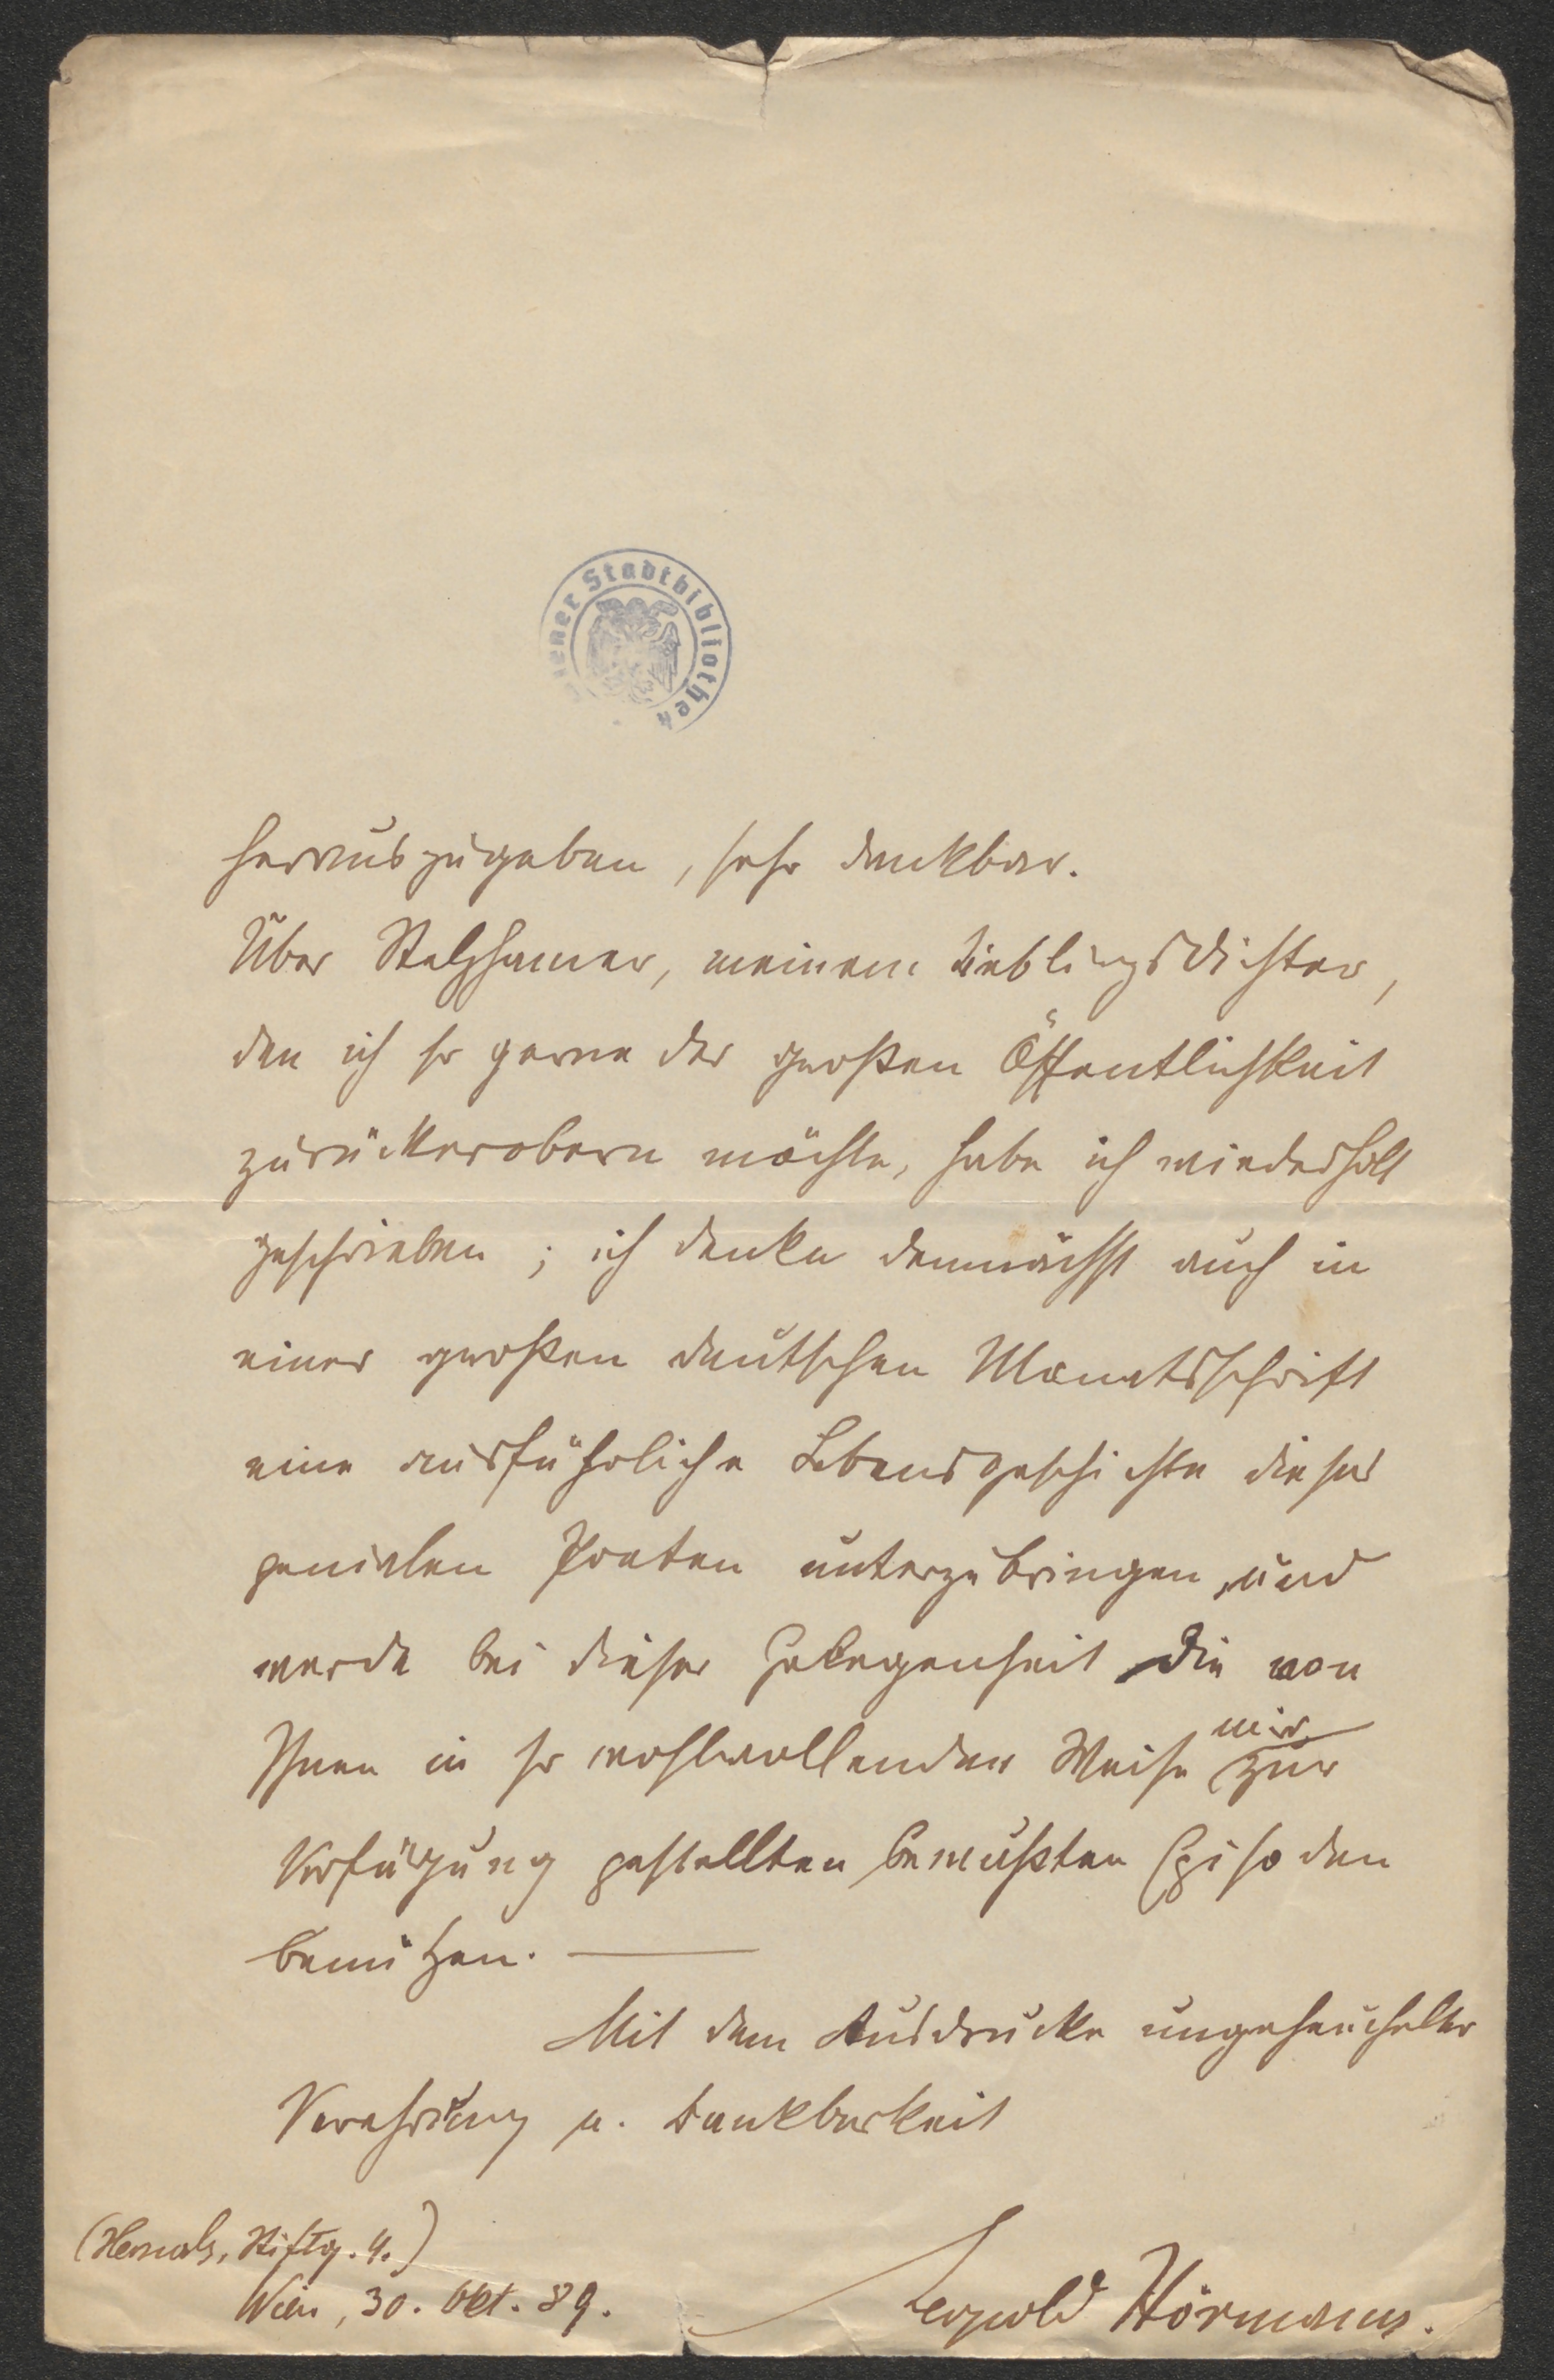 Wiener Stadtbibliothek
herauszugeben, sehr dankbar.
Über Stelzhamer, meinem Lieblingsdichter,
den ich so gerne der großen Öffentlichkeit
zurückerobern möchte, habe ich wiederholt
geschrieben; ich denke demnächst auch in
einer großen deutschen Monatsschrift
eine ausführliche Lebensgeschichte dieses
genialen Poeten unterzubringen, und
werde bei dieser Gelegenheit die von
Ihnen in so wohlwollender Weise mir zur
Verfügung gestellten bewußten Episoden
benützen. —
Mit dem Ausdrucke ungeheuchelter
Verehrung u. Dankbarkeit
(Hernals, Stiftg. 4.)
Wien, 30. Okt. 89.
Leopold Hörmann.